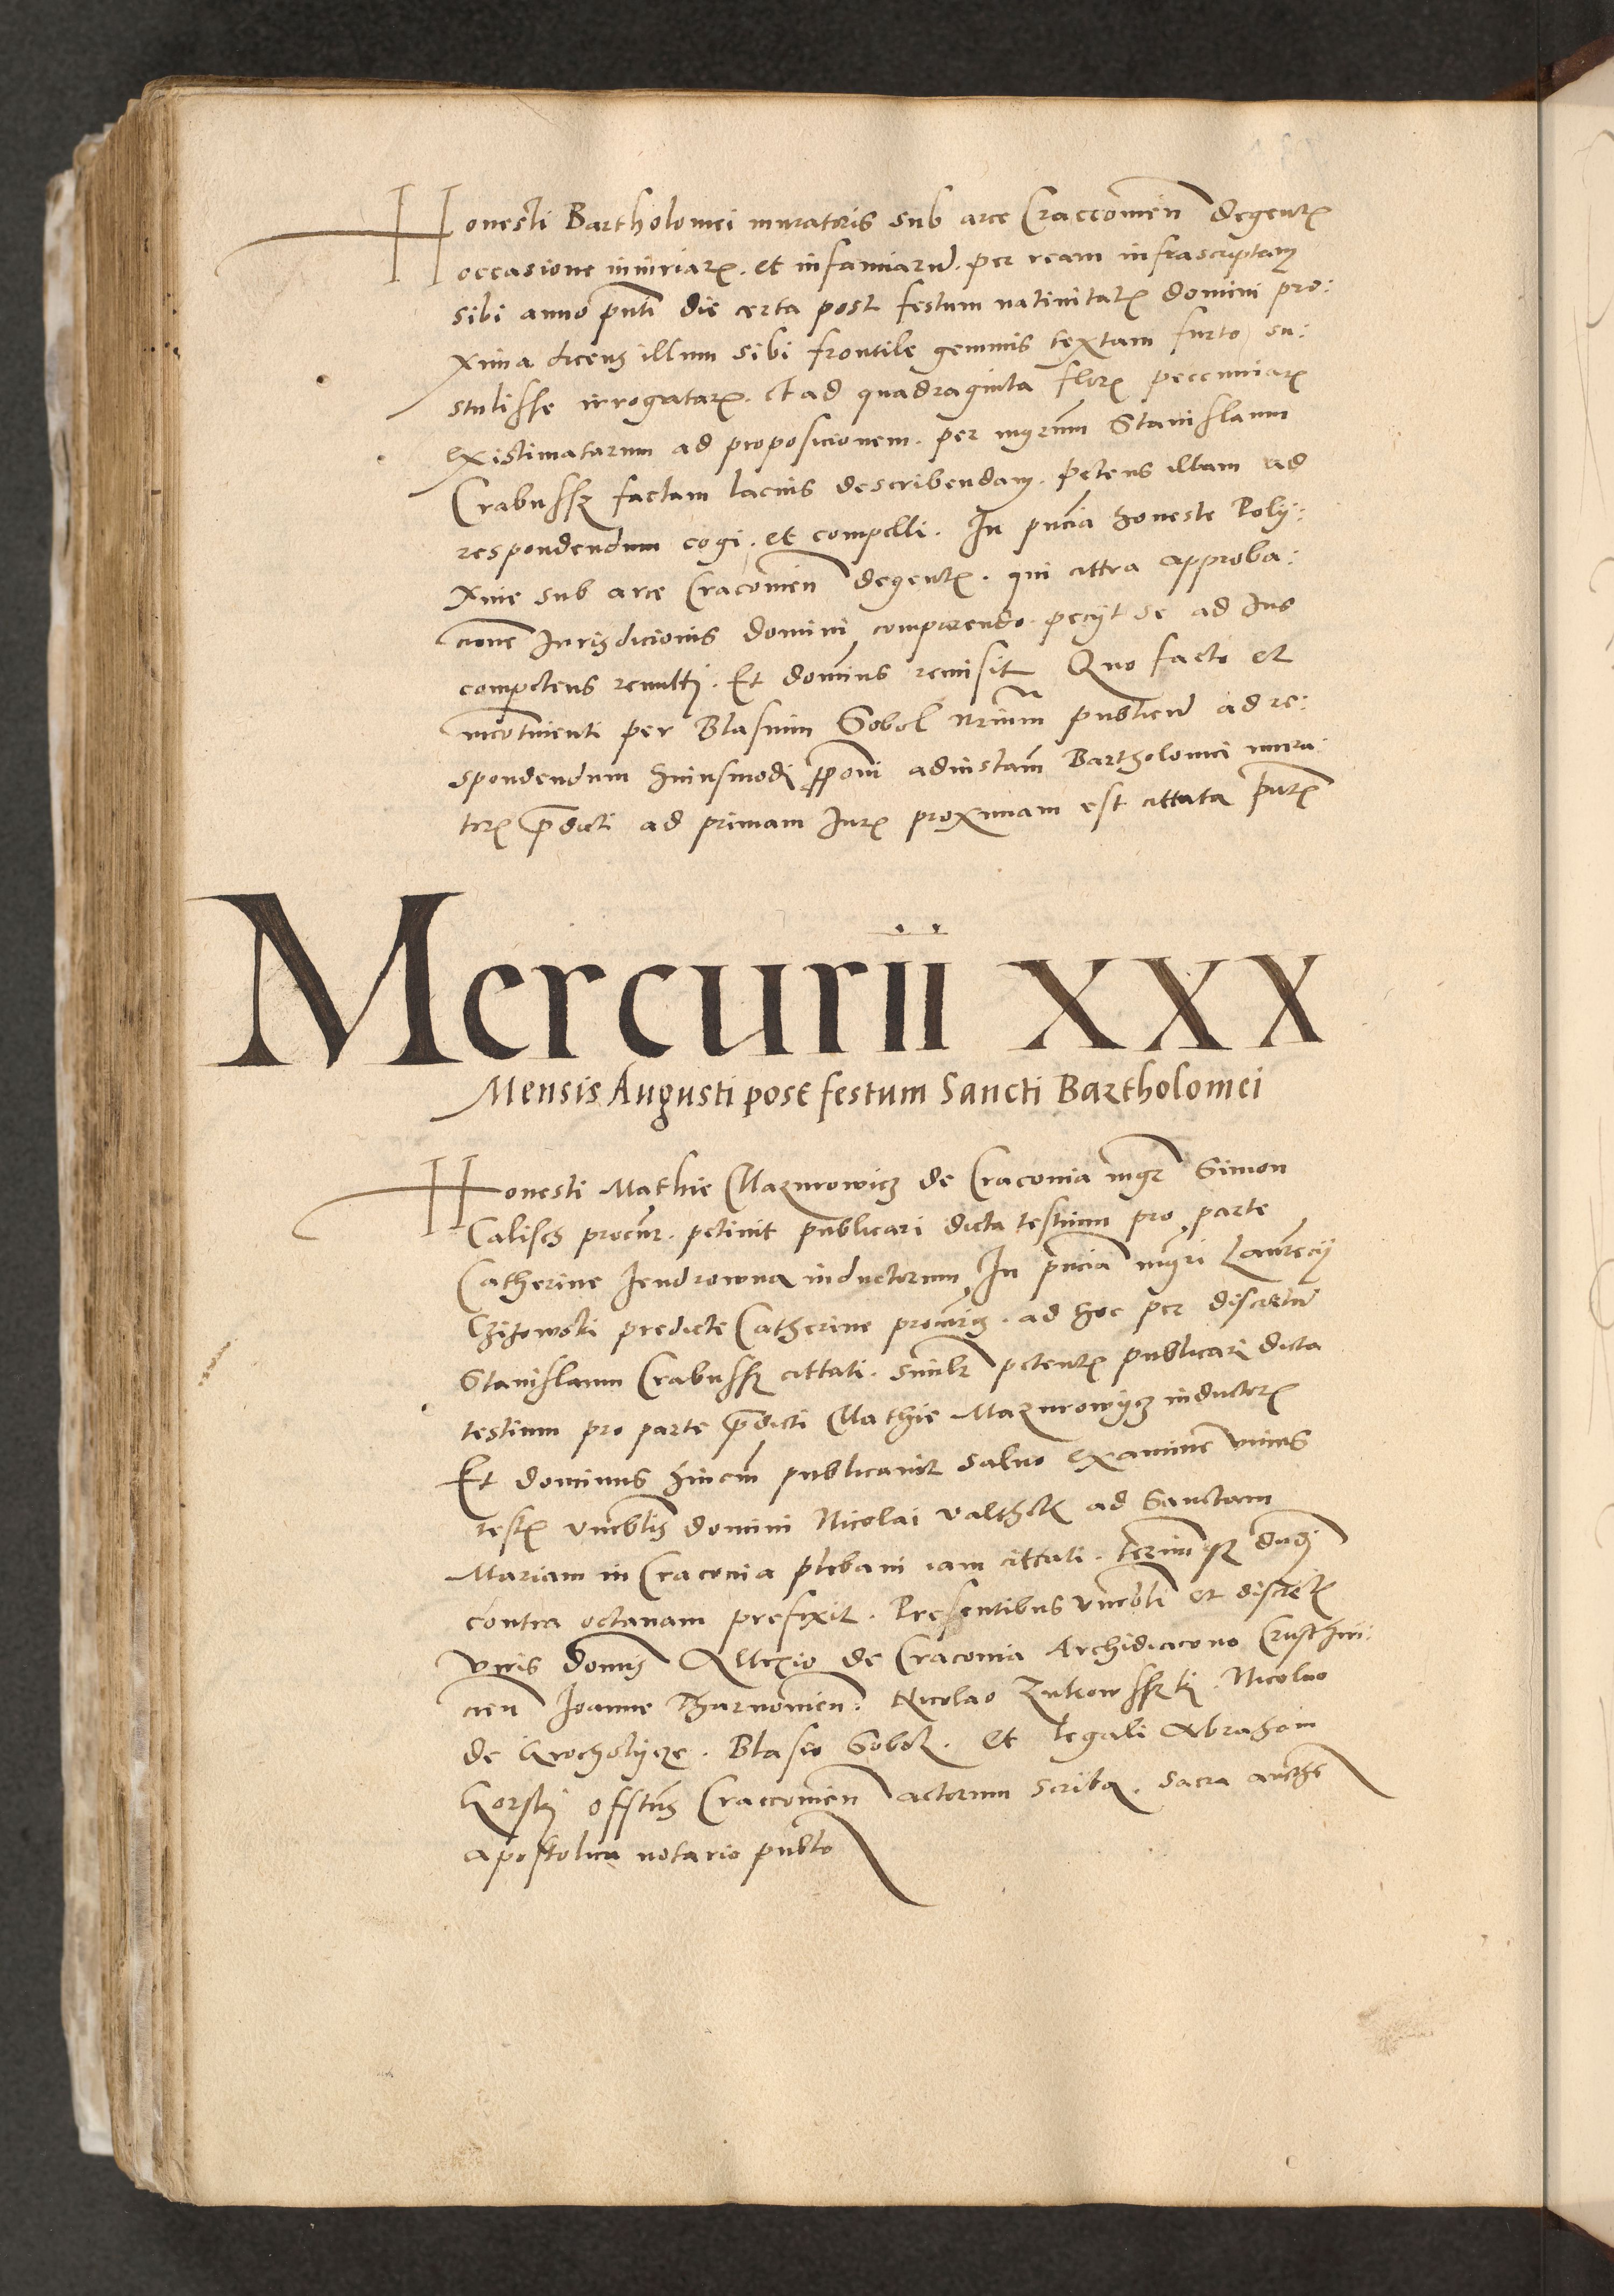 Honesti Bartholomei muratoris sub arce Craccovien̄ degentꝭ
occasione iniuriarꝭ. et infamiarū. per ream infrascriptam
sibi anno pn̄ti die certa post festum natiuitatꝭ domini pro:
xima dicens illum sibi frontile gemmis textam furto su:
stulisse irrogatarꝭ. et ad quadraginta florꝭ peccuniarꝭ
existimatarum ad proposicionem. per mgr̄um Stanislaum
Crabussk factam lacius describendam. petens illam ad
respondendum cogi. et compelli. In pn̄cia honeste Poly:
xine sub arce Cracovien̄ degentꝭ. qui cittra approba:
cione Jurisdicionis domini comparendo. peciyt se ad Jus
competens remitti. Et dominus remisit Quo facto et
incontinenti per Blasium Sobel nr̄ium publicū ad re:
spondendum huiusmodi ꝓponi ad instam̄ Bartholomei mura
torꝭ p̄dicti ad primam Jurꝭ proximam est cittata pn̄tꝭ
Mercurii XXX
Mensis Augusti post festum Sancti Bartholomei
Honesti Mathie Mazurowicz de Craconia mgr̄ Simon
Calisch procur̄. petiuit publicari dicta testium pro parte
Catherine Jendrowna inductorum In pn̄cia mgr̄i Laurecij
Czizowski predicte Catherine procur̄is. ad hoc per discretū
Stanislaum Crabussk cittati. similr̄ petentꝭ publicari dicta
testium pro parte p̄dicti Mathie Mazurowycz inductorꝭ
Et dominus hincin̄ publicauit saluo examine vnius
testꝭ vn̄eblis domini Nicolai valthek ad Sanctam
Mariam in Craconia plebani iam cittati. termin̄ qꝫ dn̄di
contra octauam prefixit. Presentibus vn̄ebli et discretꝭ
viris domis Alexio de Craconia Archidiacono Cruschwi:
cien̄ Joanne Tharnovien̄: Nicolao Zukowsskk. Nicolao
de Krocholycze. Blasio Sobek. et legali Abraham
Gorski offtūs Craccovien̄ actorum scriba. sacra aucthe
apostolica notario publco